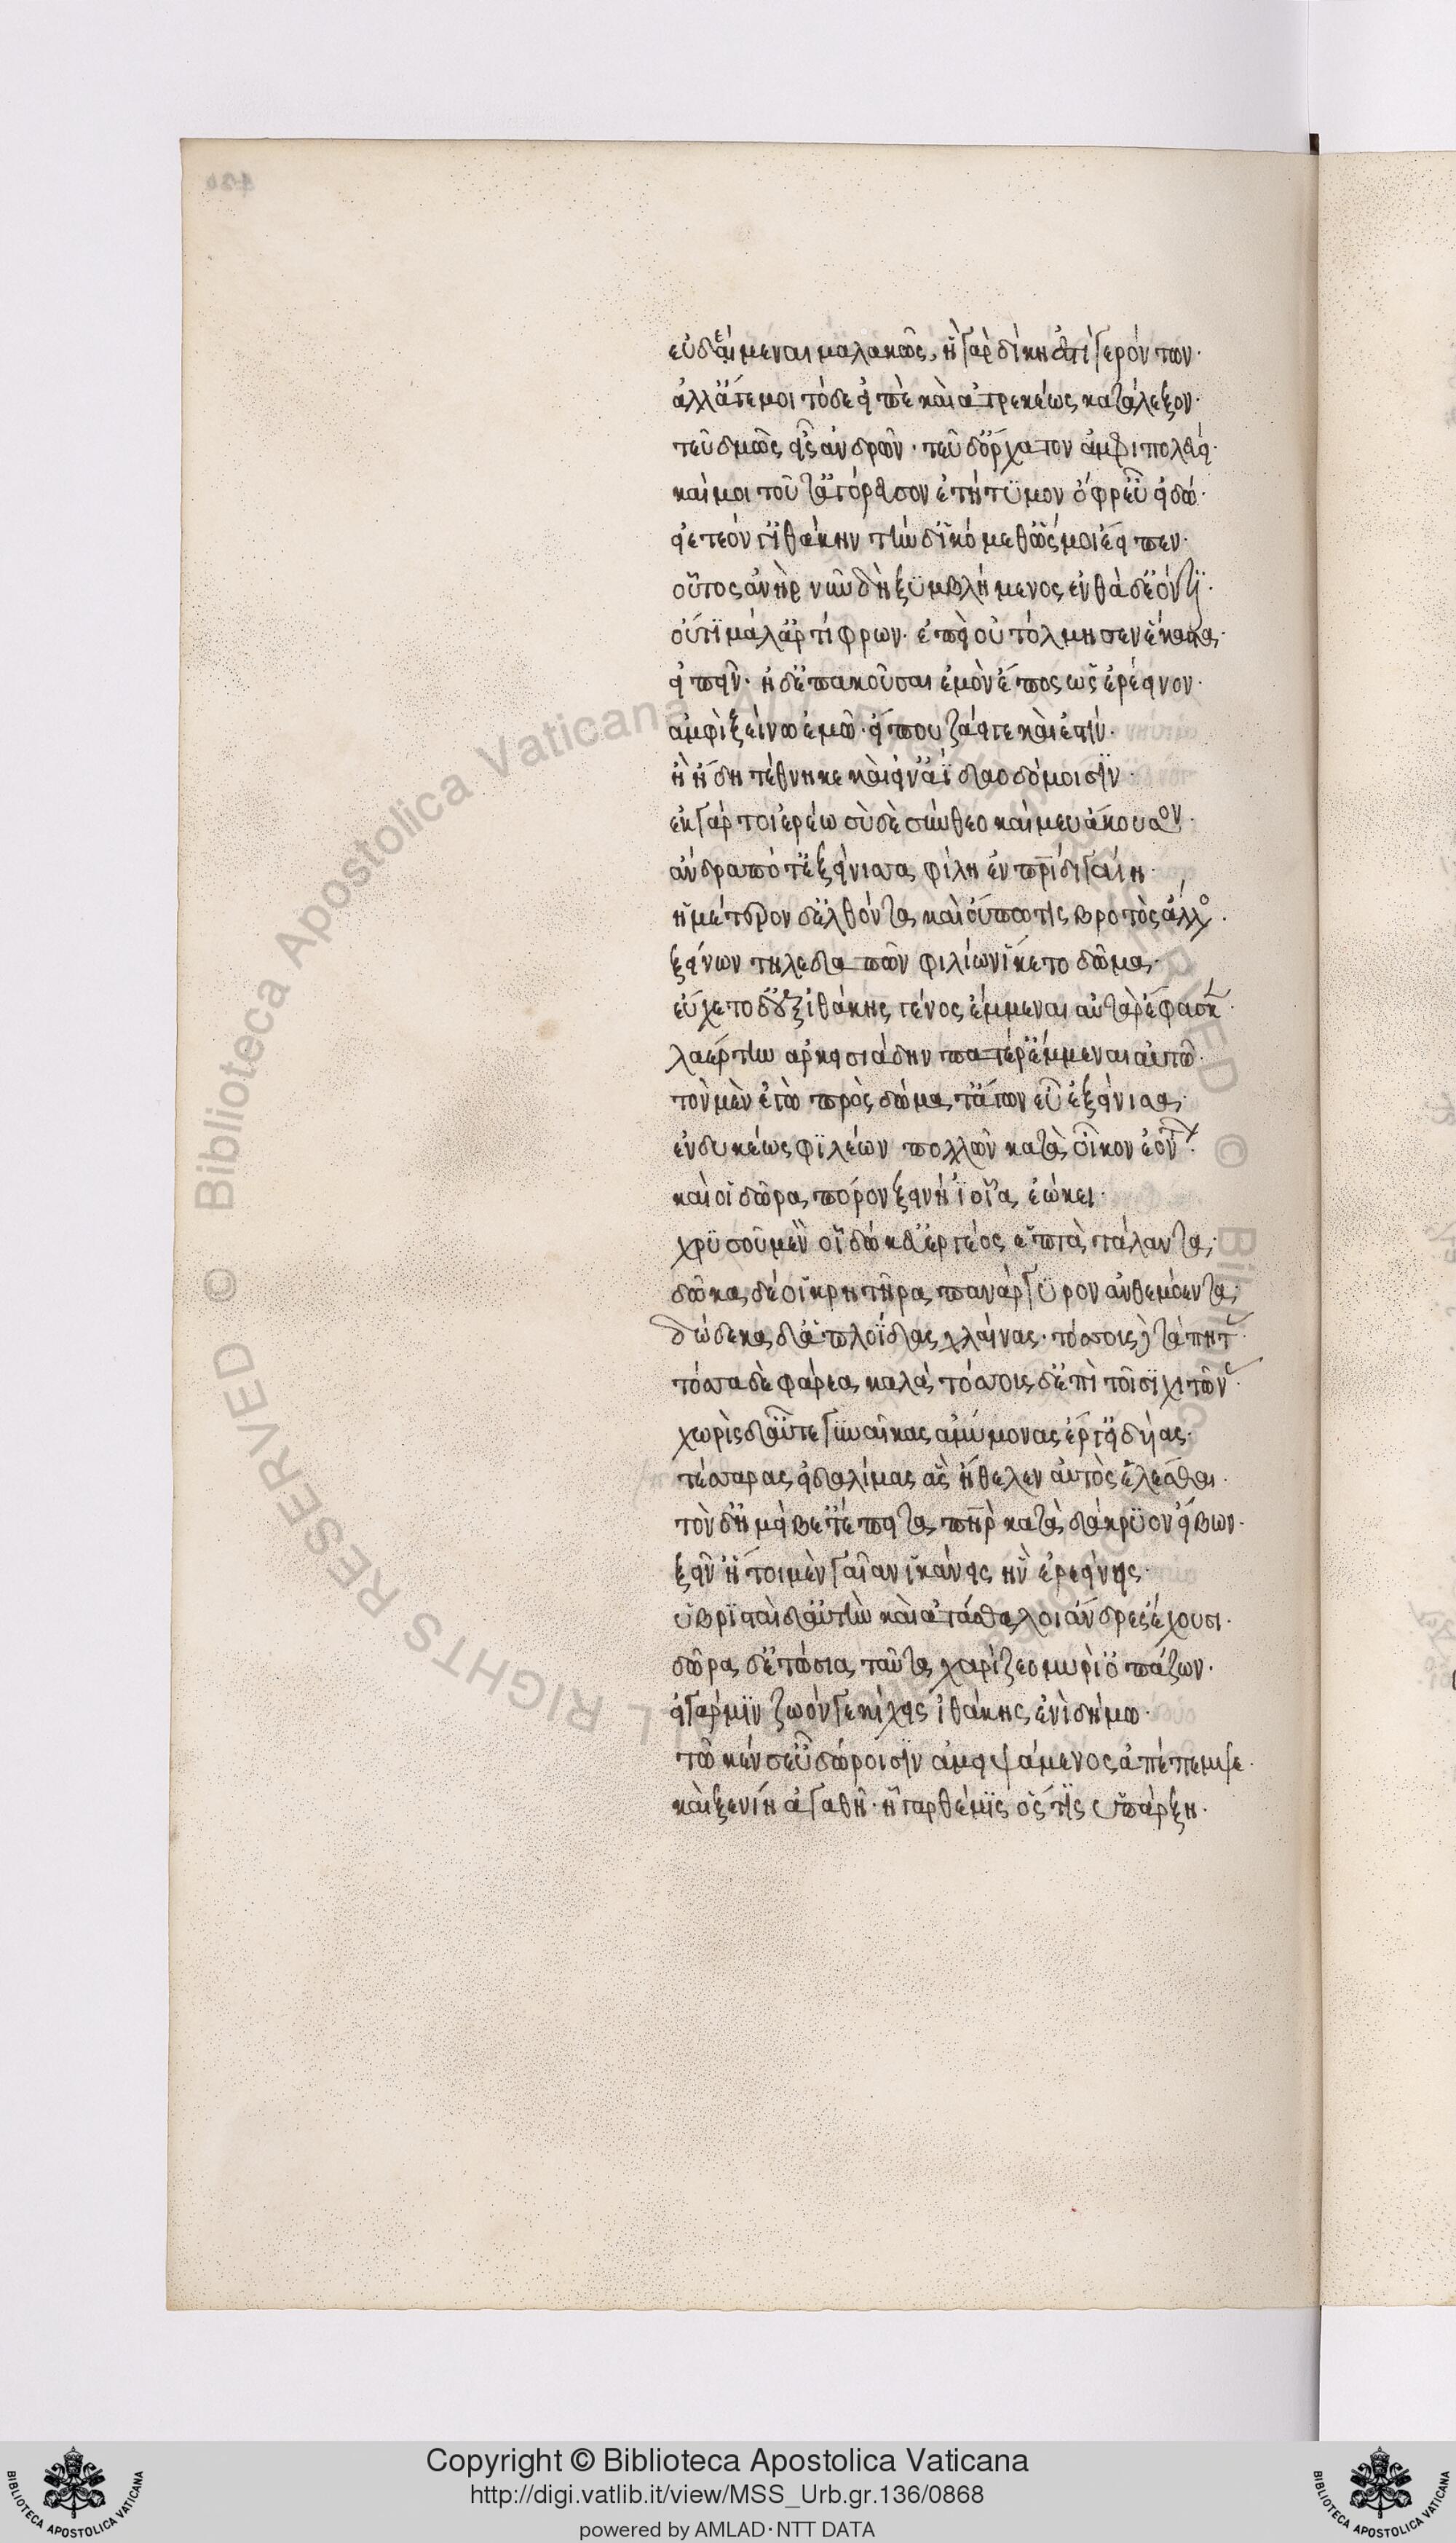 εὑδέμεναι μαλακῶς, ἣ γὰρ δίκη ἐστὶ γερόντων·
ἀλλ' ἄγε μοι τόδε εἰπὲ καὶ ἀτρεκέως κατάλεξον·
τεῦ δμὼς εἶς ἀνδρῶν· τεῦ δ' ὄρχατον ἀμφιπολεύει·
καί μοι τοῦτ' ἀγόρευσον ἐτήτυμον ὄφρ' εὖ εἰδῶ·
εἰ ἐτεόν γ' ἰθάκην τήνδ' ἱκόμεθ' ὥς μοι ἔειπεν·
οὗτος ἀνὴρ νῦν δὴ ξυμβλήμενος ἐνθάδ' ἰόντι·
οὔτι μάλ' ἀρτίφρων· ἐπεὶ οὐ τόλμησεν ἕκαστα·
εἰπεῖν· ἠδ' ἐπακοῦσαι ἐμὸν ἔπος ὡς ἐρέεινον·
ἀμφὶ ξείνω ἐμῶ· εἴ που ζώει τε καὶ ἔστιν·
ἢ ἤδη τέθνηκε καὶ εἰν ἀΐδαο δόμοισιν·
ἐκ γάρ τοι ἐρέω σὺ δὲ σύνθεο καί μευ ἄκουσον·
ἄνδρα ποτ' ἐξείνισσα φίλη ἐν πατρίδι γαίη·
ἡμέτερον δ' ἐλθόντα, καὶ οὔπω τις βροτὸς ἄλλος·
ξείνων τηλεδαπῶν φιλίων ἵκετο δῶμα·
εὔχετο δ' ἐξ ἰθάκης γένος ἔμμεναι αὐτὰρ ἔφασκε·
λαέρτην ἀρκεισιάδην πατέρ' ἔμμεναι αὐτῶ·
τὸν μὲν ἐγὼ πρὸς δώματ' ἄγων εὖ ἐξείνισσα·
ἐνδυκέως φιλέων πολλῶν κατὰ οἶκον ἐόντων·
καί οἱ δῶρα πόρον ξεινήϊ οἷα ἐώκει·
χρυσοῦ μέν οἱ δῶκ' εὐεργέος ἑπτὰ τάλαντα·
δῶκα δέ οἱ κρητῆρα πανάργυρον ἀνθεμόεντα·
δώδεκα δ' ἁπλοΐδας χλαίνας· τόσσους δὲ τάπητας·
τόσσα δὲ φάρεα καλὰ τόσσους δ' ἐπὶ τοῖσι χιτῶνας·
χωρὶς δ' αὖτε γυναῖκας ἀμύμονας ἔργ' εἰδυίας·
τέσσαρας εἰδαλίμας ἃς ἤθελεν αὐτὸς ἑλέσθαι·
τὸν δ' ἠμείβετ' ἔπειτα πατὴρ κατὰ δάκρυον εἴβων·
ξεῖν' ἤτοι μὲν γαῖαν ἱκάνεις ἣν ἐρεείνεις·
ὑβρισταὶ δ' αὐτὴν καὶ ἀτάσθαλοι ἄνδρες ἔχουσι·
δῶρα δ' ἐτώσια ταῦτα χαρίζεο μυρί' ὀπάζων·
εἰ γάρ μιν ζωόν γ' ἐκίχεις ἰθάκης ἐνὶ δήμω·
τῶ κέν σ' εὖ δώροισιν ἀμειψάμενος ἀπέπεμψε·
καὶ ξενίη ἀγαθῆ· ἡ γὰρ θέμις ὅς τις ὑπάρξη·
Copyright © Biblioteca Apostolica Vaticana
http://digi.vatlib.it/view/MSS_Urb.gr.136/0868
powered by AMLAD·NTT DATA